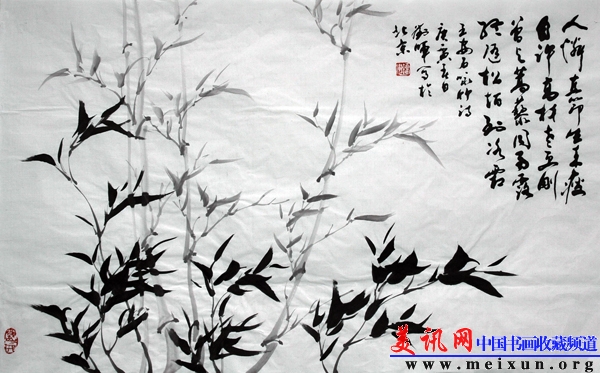 人憐直節生来瘦
自許高材老更剛
曾与蒿藜同雨露
終随松柏到冰霜
王安石咏竹詩
庚寅春日
写於
北京
美讯网 中国书画收藏频道
www.meixun.org